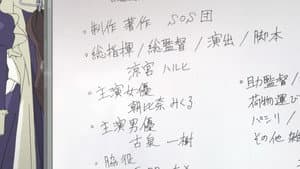 ・制作 著作 SOS団
・総指揮/総監督/演出/脚本
涼宮ハルヒ
・主演女優
朝比奈みくる
・主演男優
古泉一樹
・脇役
・助監督
荷物運び
パシリ/
その他